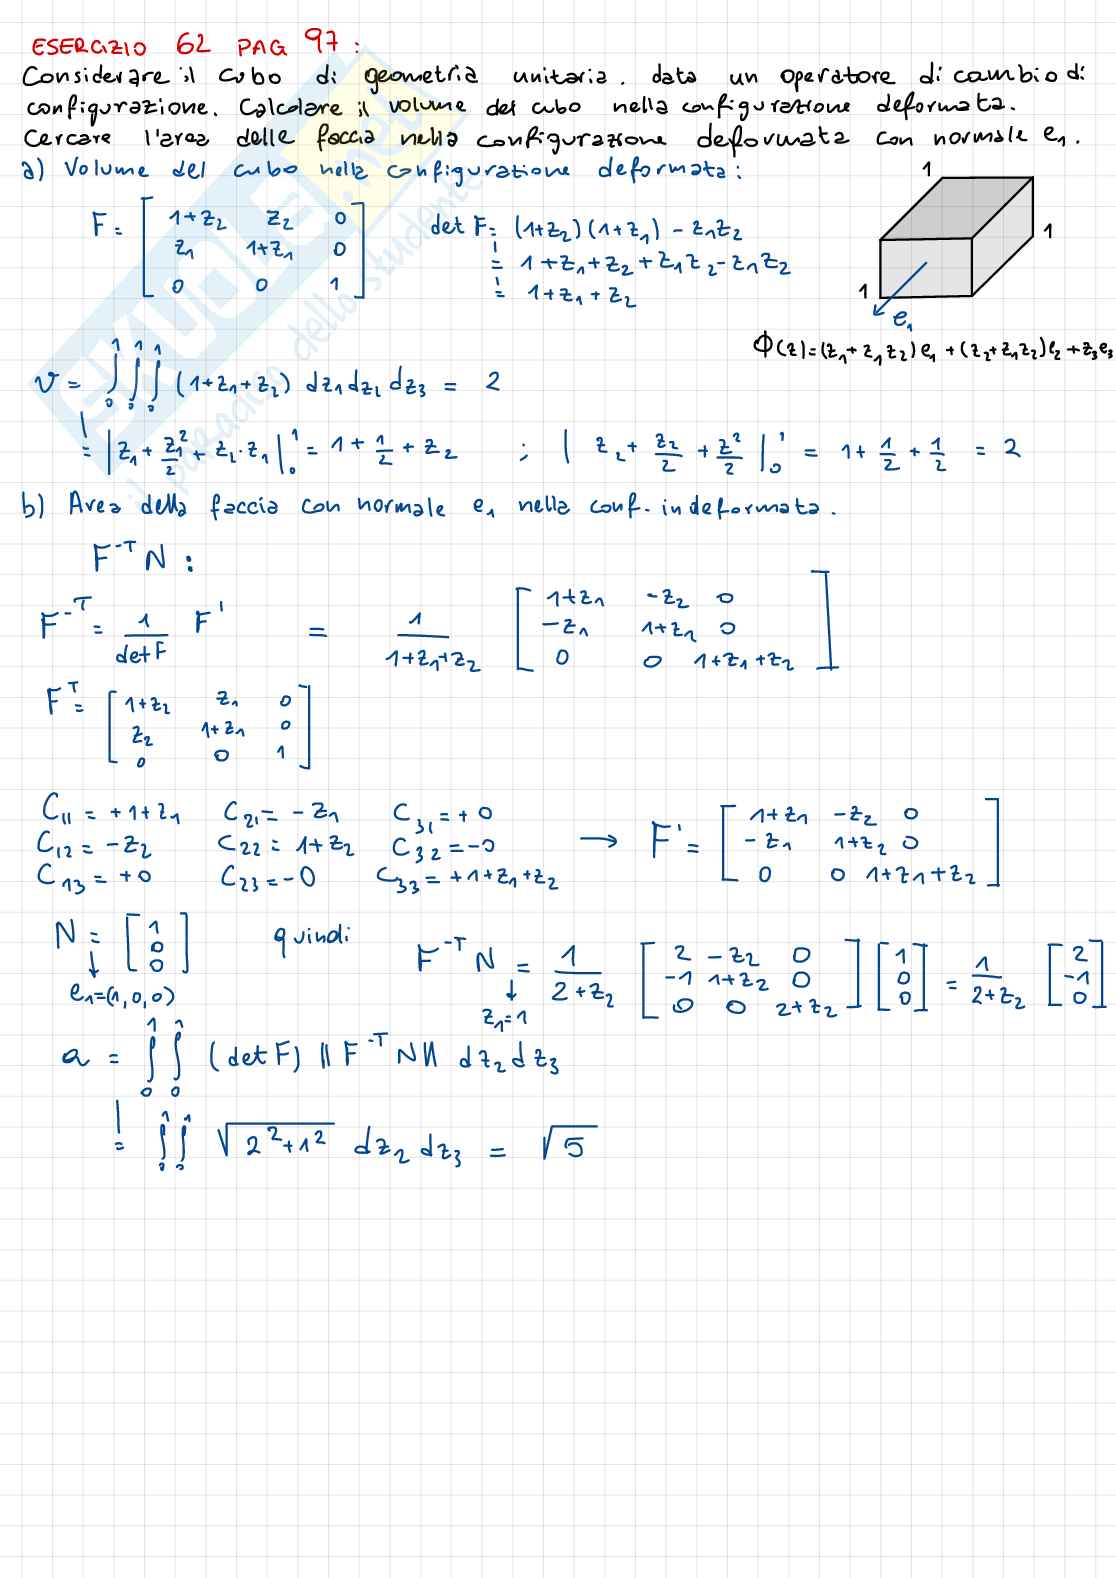 ESERCIZIO 62 PAG 97:
Considerare il cubo di geometria unitaria. data un operatore di cambio di
configurazione. Calcolare il volume del cubo nella configurazione deformata.
Cercare l'area delle faccia nella configurazione deformata con normale e₁.
a) Volume del cubo nella configurazione deformata:
F= [ 1+z₂ z₂ 0 ; z₁ 1+z₁ 0 ; 0 0 1 ] det F= (1+z₂)(1+z₁) - z₁z₂
= 1+z₁+z₂+z₁z₂-z₁z₂
= 1+z₁+z₂
1
1
1
e₁
Φ(z)=(z₁+z₁z₂)e₁+(z₂+z₁z₂)e₂+z₃e₃
v= ∫₀¹∫₀¹∫₀¹ (1+z₁+z₂) dz₁dz₂dz₃ = 2
= |z₁+z₁²/2+z₂·z₁|₀¹ = 1+1/2+z₂ ; |z₂+z₂/2+z²/2|₀¹ = 1+1/2+1/2 = 2
b) Area della faccia con normale e₁ nella conf. indeformata.
F⁻ᵀN:
F⁻ᵀ= 1/detF F' = 1/(1+z₁+z₂) [ 1+z₁ -z₂ 0 ; -z₁ 1+z₂ 0 ; 0 0 1+z₁+z₂ ]
Fᵀ= [ 1+z₂ z₁ 0 ; z₂ 1+z₁ 0 ; 0 0 1 ]
C₁₁=+1+z₁ C₂₁=-z₁ C₃₁=+0
C₁₂=-z₂ C₂₂=1+z₂ C₃₂=-0 → F'= [ 1+z₁ -z₂ 0 ; -z₁ 1+z₂ 0 ; 0 0 1+z₁+z₂ ]
C₁₃=+0 C₂₃=-0 C₃₃=+1+z₁+z₂
N= [ 1 ; 0 ; 0 ] quindi F⁻ᵀN = 1/(2+z₂) [ 2 -z₂ 0 ; -1 1+z₂ 0 ; 0 0 2+z₂ ] [ 1 ; 0 ; 0 ] = 1/(2+z₂) [ 2 ; -1 ; 0 ]
↓ e₁=(1,0,0) ↓ z₁=1
a = ∫₀¹∫₀¹ (detF) ‖F⁻ᵀN‖ dz₂dz₃
= ∫₀¹∫₀¹ √(2²+1²) dz₂dz₃ = √5
SKUOLA.net
il paradiso dello studente